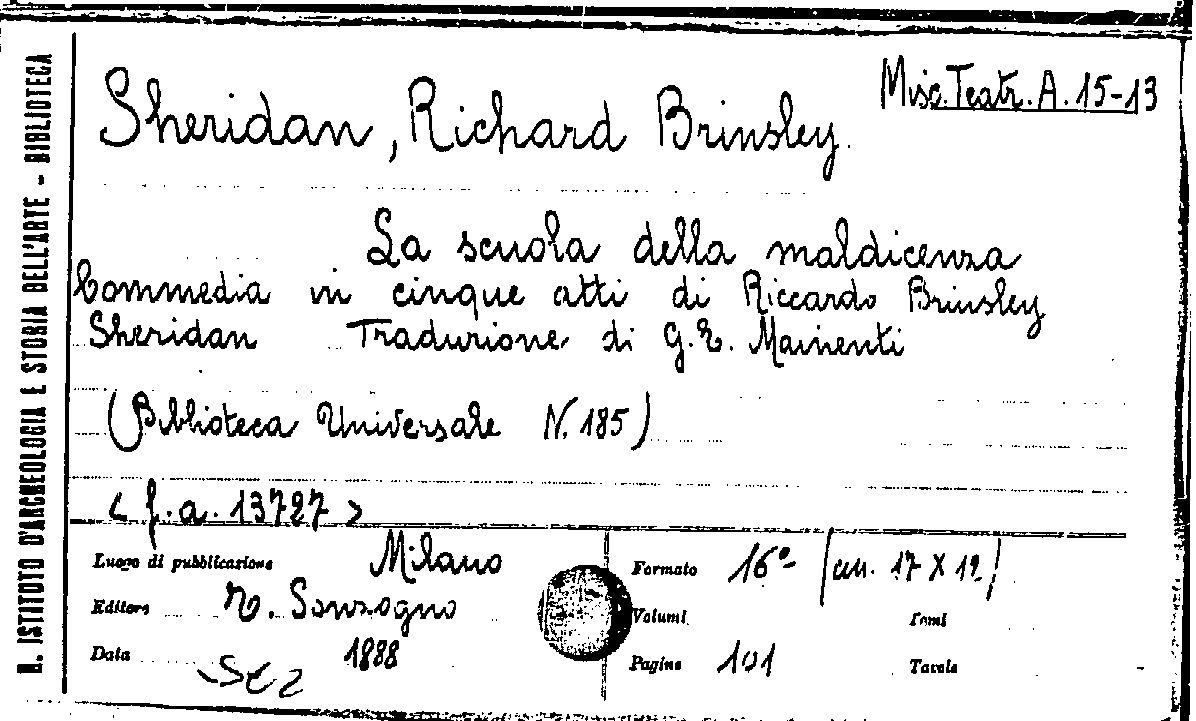 R. ISTITUTO D'ARCHEOLOGIA E STORIA DELL'ARTE - BIBLIOTECA
Misc. Teatr. A. 15-13
Sheridan, Richard Brinsley.
La scuola della maldicenza
Commedia in cinque atti di Riccardo Brinsley
Sheridan Traduzione di G. E. Mainenti
(Biblioteca Universale N. 185)
< f. a. 13727 >
Luogo di pubblicazione Milano
Formato 16° (cm. 17 X 12)
Editore E. Sonzogno
Volumi
Tomi
Data 1888
Pagine 101
Tavole